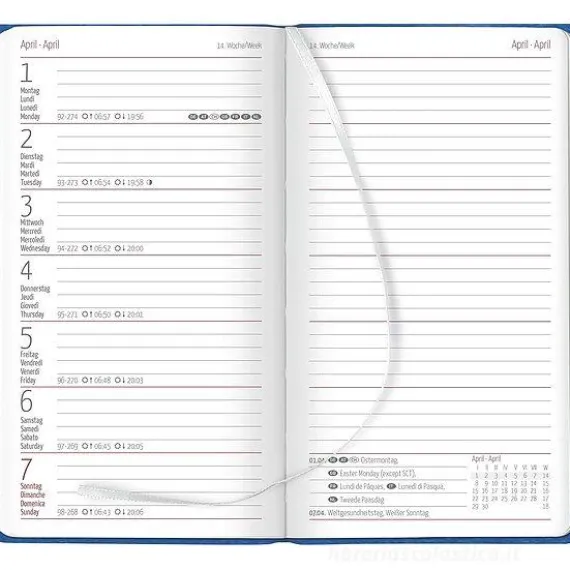 April - April
14. Woche/Week
1
Montag
Lundi
Lunedì
Monday
92-274 06:57 19:56
2
Dienstag
Mardi
Martedì
Tuesday
93-273 06:54 19:58
3
Mittwoch
Mercredi
Mercoledì
Wednesday
94-272 06:52 20:00
4
Donnerstag
Jeudi
Giovedì
Thursday
95-271 06:50 20:01
5
Freitag
Vendredi
Venerdì
Friday
96-270 06:48 20:03
6
Samstag
Samedi
Sabato
Saturday
97-269 06:45 20:05
7
Sonntag
Dimanche
Domenica
Sunday
98-268 06:43 20:06
14. Woche/Week
April - April
01.04. Ostermontag,
Easter Monday (except SCT),
Lundi de Pâques, Lunedì di Pasqua,
Tweede Paasdag
07.04. Weltgesundheitstag, Weißer Sonntag
April - April
1 2 3 4 5 6 7 14
8 9 10 11 12 13 14 15
15 16 17 18 19 20 21 16
22 23 24 25 26 27 28 17
29 30 18